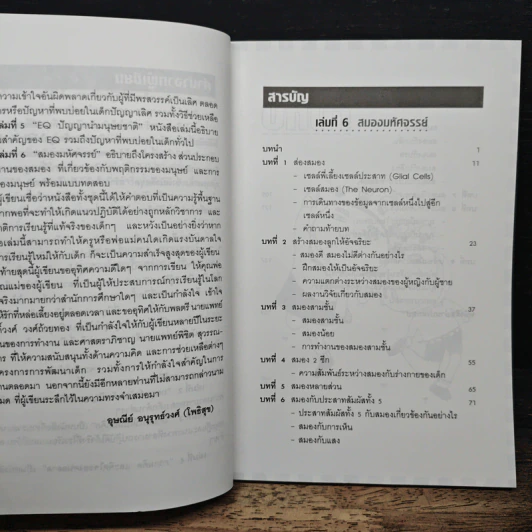 ความเข้าใจอันผิดพลาดเกี่ยวกับผู้ที่มีพรสวรรค์เป็นเลิศ ตลอด
การหรือปัญหาที่พบบ่อยในเด็กปัญญาเลิศ รวมทั้งวิธีช่วยเหลือ
เล่มที่ 5 "EQ ปัญญานำมนุษยชาติ" หนังสือเล่มนี้อธิบาย
สำคัญของ EQ รวมถึงปัญหาที่พบบ่อยในเด็กทั่วไป
เล่มที่ 6 "สมองมหัศจรรย์" อธิบายถึงโครงสร้าง ส่วนประกอบ
งานของสมอง ที่เกี่ยวข้องกับพฤติกรรมของมนุษย์ และการ
ของมนุษย์ พร้อมแบบทดสอบ
ผู้เขียนเชื่อว่าหนังสือทั้งชุดนี้ได้ให้คำตอบที่เป็นความรู้พื้นฐาน
มากพอที่จะทำให้เกิดแนวปฏิบัติได้อย่างถูกหลักวิชาการ และ
การเรียนรู้ที่แท้จริงของเด็กๆ และหวังเป็นอย่างยิ่งว่าหาก
เล่มนี้สามารถทำให้ครูหรือพ่อแม่คนใดเกิดแรงบันดาลใจ
การเรียนรู้ใหม่ให้กับเด็ก ก็จะเป็นความสำเร็จสูงสุดของผู้เขียน
ท้ายสุดนี้ผู้เขียนขออุทิศความดีใดๆ จากการเขียน ให้คุณพ่อ
แม่ของผู้เขียน ที่เป็นผู้ให้ประสบการณ์การเรียนรู้ในโลก
จริงมากมายกว่าสำนักการศึกษาใดๆ และเป็นกำลังใจ เข้าใจ
ให้รักที่หล่อเลี้ยงอยู่ตลอดเวลา และขออุทิศให้กับพลตรี นายแพทย์
วงศ์ วงศ์ถ้วยทอง ที่เป็นกำลังใจให้กับผู้เขียนหลายปีในระยะ
ของการทำงาน และศาสตราภิชาญ นายแพทย์พิชิต สุวรรณ-
การ ที่ให้ความสนับสนุนทั้งด้านความคิด และการช่วยเหลือต่างๆ
โครงการการพัฒนาเด็ก รวมทั้งการให้กำลังใจสำคัญในการ
งานตลอดมา นอกจากนี้ยังมีอีกหลายท่านที่ไม่สามารถกล่าวนาม
หมด ที่ผู้เขียนระลึกไว้ในความทรงจำเสมอมา
อุษณีย์ อนุรุทธ์วงศ์ (โพธิสุข)
สารบัญ
เล่มที่ 6 สมองมหัศจรรย์
บทนำ 1
บทที่ 1 ส่องสมอง 11
– เซลล์พี่เลี้ยงเซลล์ประสาท (Glial Cells)
– เซลล์สมอง (The Neuron)
– การเดินทางของข้อมูลจากเซลล์หนึ่งไปสู่อีก
เซลล์หนึ่ง
– คำถามท้ายบท
บทที่ 2 สร้างสมองลูกให้อัจฉริยะ 23
– สมองดี สมองไม่ดีต่างกันอย่างไร
– ฝึกสมองให้เป็นอัจฉริยะ
– ความแตกต่างระหว่างสมองของผู้หญิงกับผู้ชาย
– ผลงานวิจัยเกี่ยวกับสมอง
บทที่ 3 สมองสามชั้น 37
– สมองสามชั้น
– สมองน้อย
– การทำงานของสมองสามชั้น
บทที่ 4 สมอง 2 ซีก 55
– ความสัมพันธ์ระหว่างสมองกับร่างกายของเด็ก
บทที่ 5 สมองหลายส่วน 65
บทที่ 6 สมองกับประสาทสัมผัสทั้ง 5 71
– ประสาทสัมผัสทั้ง 5 กับสมองเกี่ยวข้องกันอย่างไร
– สมองกับการเห็น
– สมองกับแสง